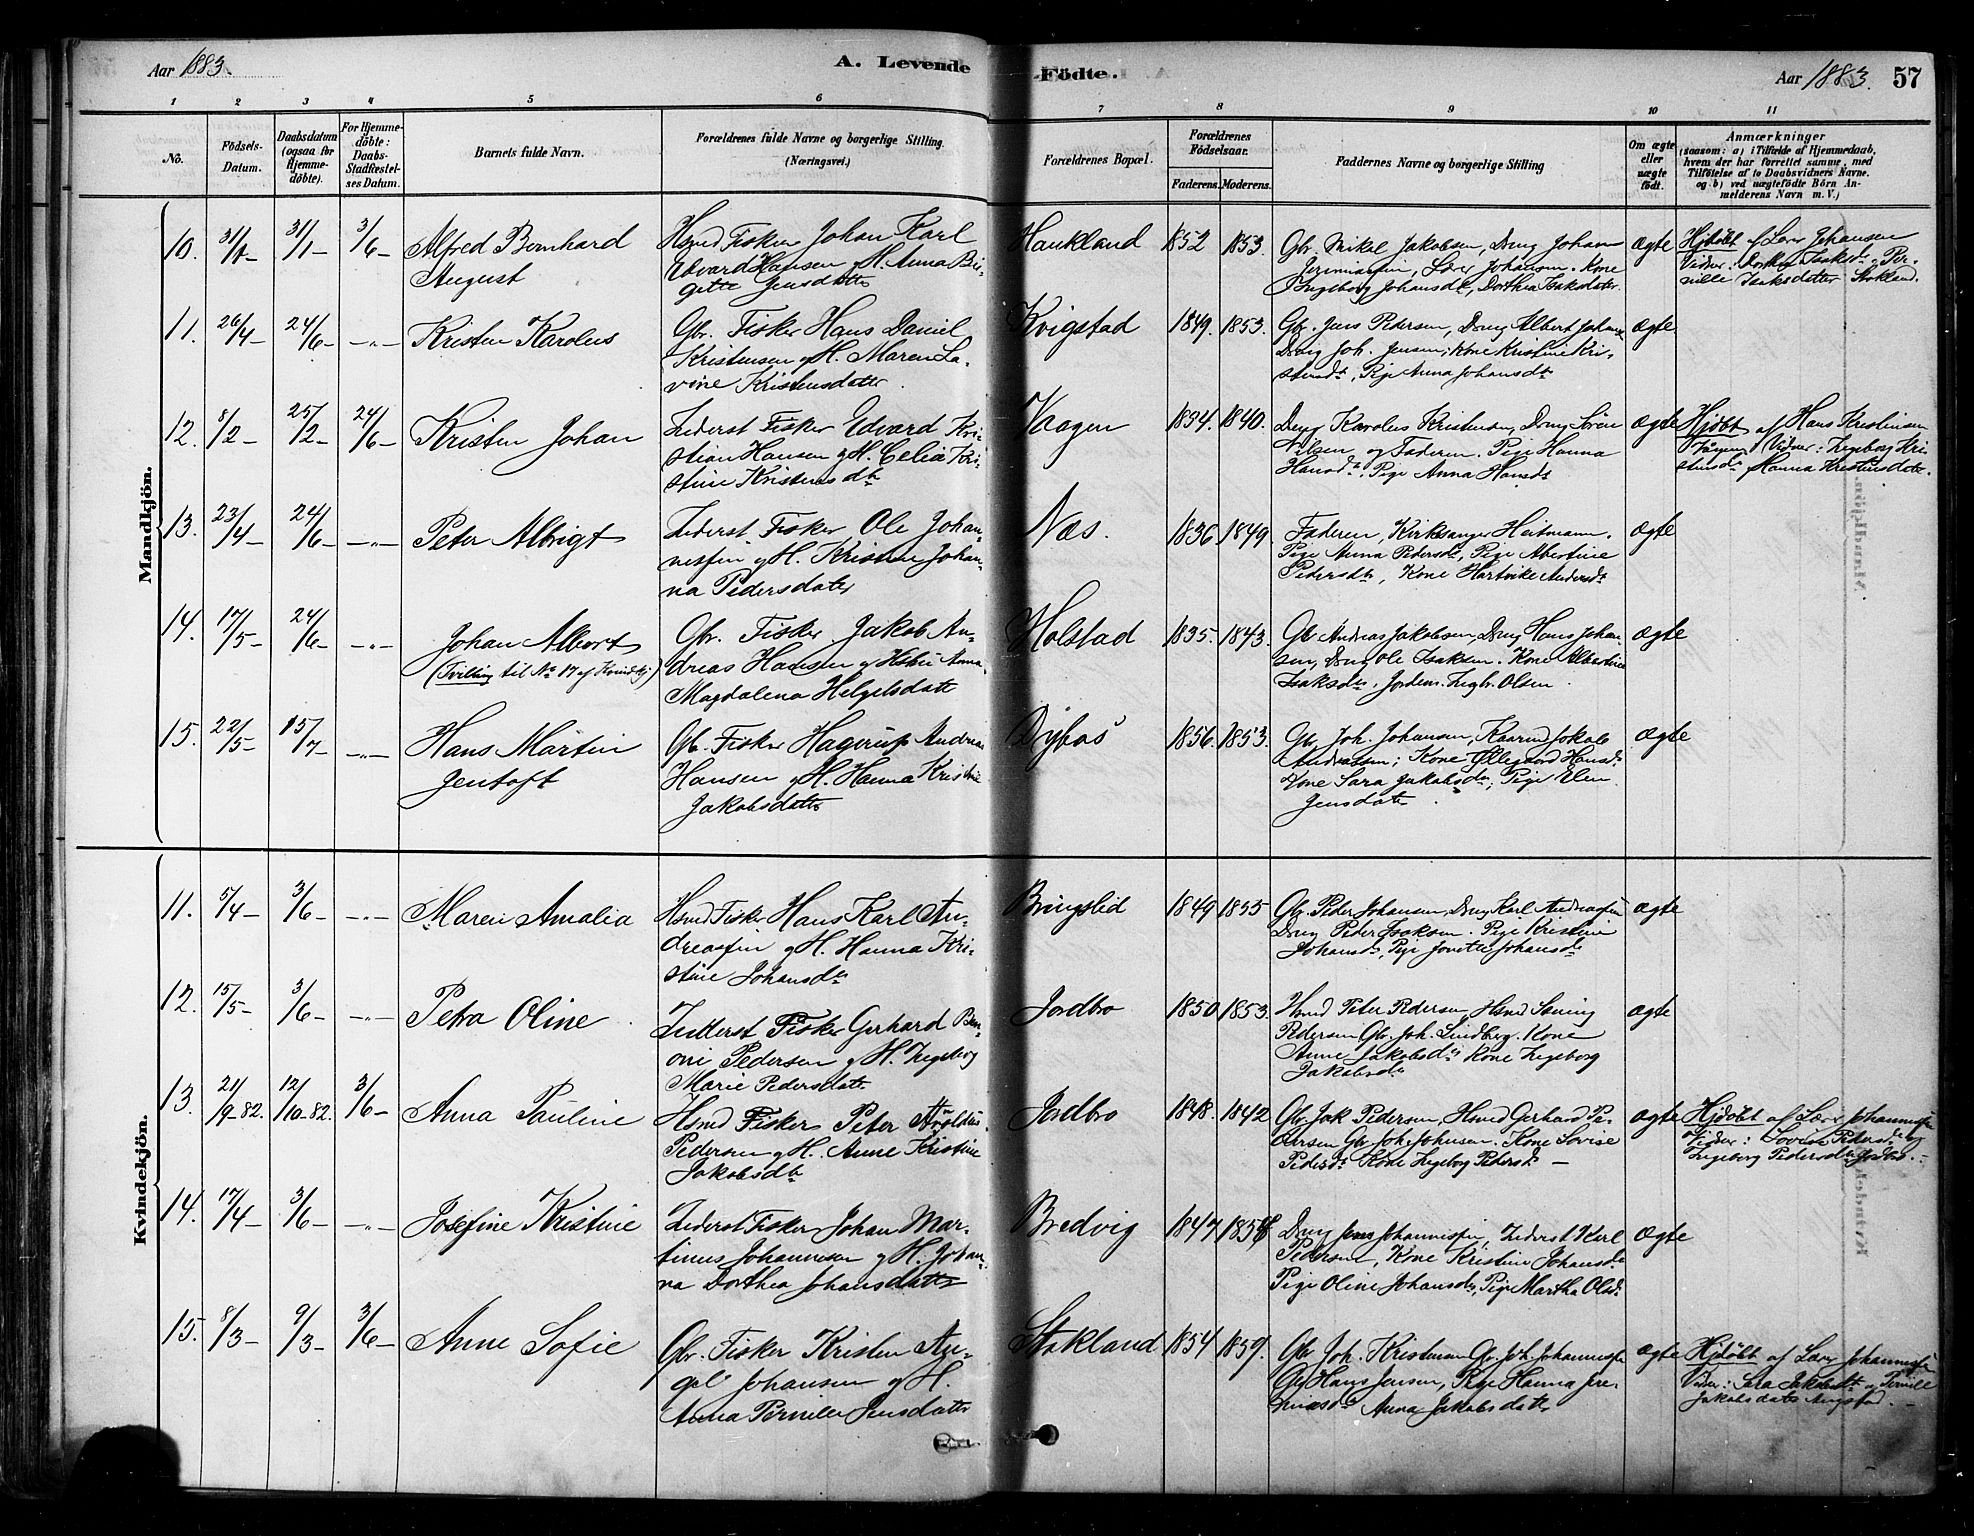 Aar 1883.
A. Levende Födte.
Aar 1883. 57
1 2 3 4 5 6 7 8 9 10 11
No.
Födsels-Datum.
Daabsdatum (ogsaa for Hjemme-döbte).
For Hjemme-döbte: Daabs-Stadfæstel-ses Datum.
Barnets fulde Navn.
Forældrenes fulde Navne og borgerlige Stilling. (Næringsvei.)
Forældrenes Bopæl.
Forældrenes Födselsaar.
Faderens. Moderens.
Faddernes Navne og borgerlige Stilling
Om ægte eller uægte födt.
Anmærkninger
(saasom: a) i Tilfælde af Hjemmedaab,
hvem der har forrettet samme, med
Tilföielse af to Daabsvidners Navne.
og b) ved uægtefödte Börn An-
melderens Navn m. V.)
Mandkjön.
10. 31/1 31/1 3/6 Alfred Bernhard August
Hsmd Fisker Johan Karl
Edvard Hansen & H. Anna Bir-
gitte Jensdatter
Haukland 1852 1853.
Gbr. Mikel Jakobsen, Dreng Johan
Jeremiassen, Lærer Johansen. Kone
Ingeborg Johansdtr, Dorthea Isaksdater.
ægte
Hjdöbt af Lærer Johansen
Vidner: Dorthea Isaksdr. & Per-
nille Isaksdatter Stokland.
11. 26/4 24/6 -"- Kristen Karolus
Gbr. Fisker Hans Daniel
Kristensen & H. Maren La-
vine Kristensdatter.
Kvigstad 1849. 1853.
Gbr. Jens Pedersen, Dreng Albert Johans
Dreng Joh. Jensen, Kone Kristine Kri-
stensdtr, Pige Anna Johansdtr
ægte
12. 8/2 25/2 24/6 Kristen Johan
Inderst Fisker Edvard Kri-
stian Hansen & H. Celia Kri-
stine Kristensdtr
Vaagen 1834. 1840.
Dreng Karolus Kristensen, Dreng Sören
Nilsen og Faderen. Pige Hanna
Hansdtr, Pige Anna Hansdtr
ægte
Hjdöbt af Hans Kristensen
Vågen Vidner: Ingeborg Kri-
stensdr & Hanna Kristensdatr.
13. 23/4 24/6 -"- Peter Albrigt
Inderst Fisker Ole Johan-
nessen & H. Kristine Johan-
na Pedersdatter
Næs. 1836 1849
Faderen, Kirkesanger Heitmann.
Pige Anna Pedersdtr, Pige Albertine
Pedersdtr, Kone Hartvike Andersdtr
ægte
14. 17/5 24/6 -"- Johan Albert
(Tvilling til No 17 af Kvindekj)
Gbr. Fisker Jakob An-
dreas Hansen & Hstru Anna
Magdalena Helgelsdatter
Holstad 1835. 1843.
Gbr Andreas Jakobsen, Dreng Hans Johan
sen, Dreng Ole Isaksen. Kone Albertine
Isaksdtr, Jordem. Ingbr. Olsen.
ægte
15. 22/5 15/7 -"- Hans Martin Jentoft
Gbr. Fisker Hagerup Andreas
Hansen & H. Hanna Kristine
Jakobsdatter
Dybos 1856. 1853.
Gbr. Joh. Johansen, Kaarmd Jakob
Andreassen; Kone Ellegaard Hansdr
Kone Sara Jakobsdtr, Pige Elen
Jensdatr.
ægte
Kvindekjön.
11. 5/4 3/6 -"- Maren Amalia
Hsmd Fisker Hans Karl An-
dreassen & H. Hanna Kri-
stine Johansdtr
Bringslid 1849 1855
Gbr. Peder Johansen, Dreng Karl Andreassen
Dreng Peder Isaksen. Pige Kristine
Johansdtr, Pige Jonette Johansdtr
ægte
12. 15/5 3/6 -"- Petra Oline
Inderst Fisker Gerhard Ben-
oni Pedersen & H. Ingeborg
Marie Pedersdatter
Jordbro 1850 1853.
Hsmd Peter Pedersen, Hsmd Søning
Pedersen Gbr. Joh. Lindberg. Kone
Anne Jakobsdtr Kone Ingeborg
Jakobsdtr
ægte
13. 21/9-82. 12/10-82. 3/6 Anna Pauline
Hsmd Fisker Peter Arøldus
Pedersen & H. Anne Kristine
Jakobsdtr
Jordbro 1848. 1842
Gbr. Jak Pedersen, Hsmd Gerhard Pe-
dersen Gbr Joh. Johansen. Kone Lovise
Pedersdtr Kone Ingeborg Pedersdtr
ægte
Hjdöbt af Lærer Johannessen
Vidner: Lovise Pedersdtr og
Ingeborg Pedersdtr Jordbro.
14. 17/4 3/6 -"- Josefine Kristine
Inderst Fisker Johan Mar-
tinus Johannesen & H. Johan-
na Dorthea Johansdatter
Bredvig 1847 1854
Dreng Jens Johannessen, Inderst Karl
Pedersen, Kone Kristine Johansdtr
Pige Oline Johansdtr, Pige Martha Olsdr
ægte
15. 8/3 9/3 3/6 Anne Sofie
Gbr. Fisker Kristen An-
gel Johansen & H.
Anna Pernille Jensdatter
Stokland 1854 1859.
Gbr Joh. Kristensen Gbr. Joh. Johannessen
Gbr Hans Jensen, Pige Hanna Jere-
miasdtr Anna Jakobsdatter
ægte
Hjdöbt af Lærer Johannessen
Vidner: Sara Jakobsdtr & Pernille
Jakobsdatr